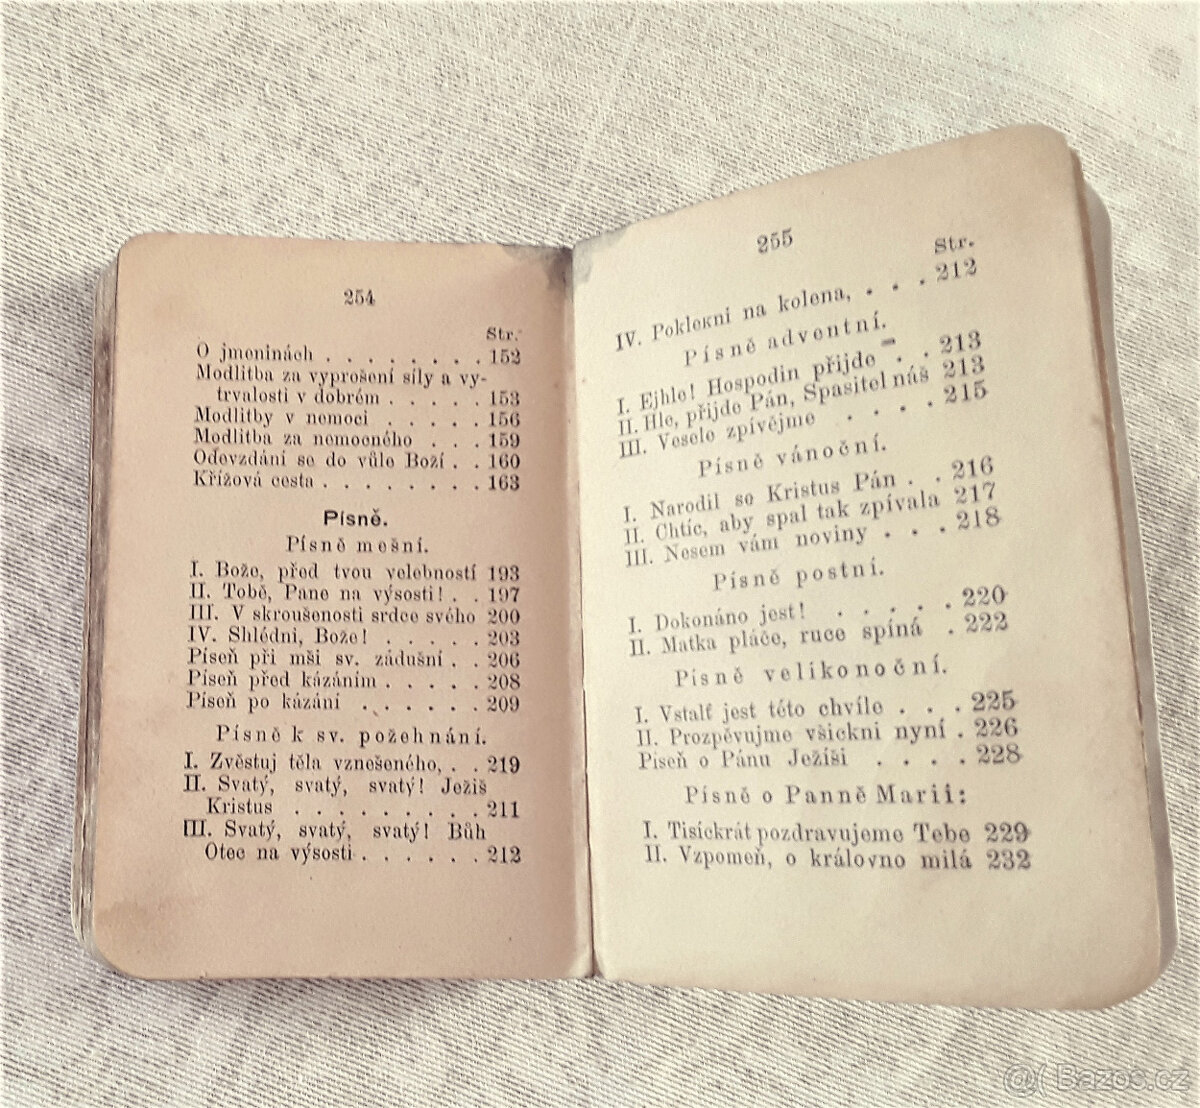 254
Str.
O jmeninách . . . . . . . . 152
Modlitba za vyprošení síly a vy-
trvalosti v dobrém . . . . . 153
Modlitby v nemoci . . . . . 156
Modlitba za nemocného . . . 159
Odevzdání se do vůle Boží . . 160
Křížová cesta . . . . . . . . 163
Písně.
Písně mešní.
I. Bože, před tvou velebností 193
II. Tobě, Pane na výsosti! . . 197
III. V skroušenosti srdce svého 200
IV. Shlédni, Bože! . . . . . 203
Píseň při mši sv. zádušní . . 206
Píseň před kázáním . . . . . 208
Píseň po kázání . . . . . . 209
Písně k sv. požehnání.
I. Zvěstuj těla vznešeného, . . 219
II. Svatý, svatý, svatý! Ježiš
Kristus . . . . . . . . . 211
III. Svatý, svatý, svatý! Bůh
Otec na výsosti . . . . . . 212
255
Str.
IV. Poklekni na kolena, . . . 212
Písně adventní.
I. Ejhle! Hospodin přijde . . 213
II. Hle, přijde Pán, Spasitel náš 213
III. Vesele zpívejme . . . . 215
Písně vánoční.
I. Narodil se Kristus Pán . . 216
II. Chtíc, aby spal tak zpívala 217
III. Nesem vám noviny . . . 218
Písně postní.
I. Dokonáno jest! . . . . . 220
II. Matka pláče, ruce spíná . 222
Písně velikonoční.
I. Vstalť jest této chvíle . . . 225
II. Prozpěvujme všickni nyní . 226
Píseň o Pánu Ježíši . . . . 228
Písně o Panně Marii:
I. Tisíckrát pozdravujeme Tebe 229
II. Vzpomeň, o královno milá 232
@( Bazos.cz